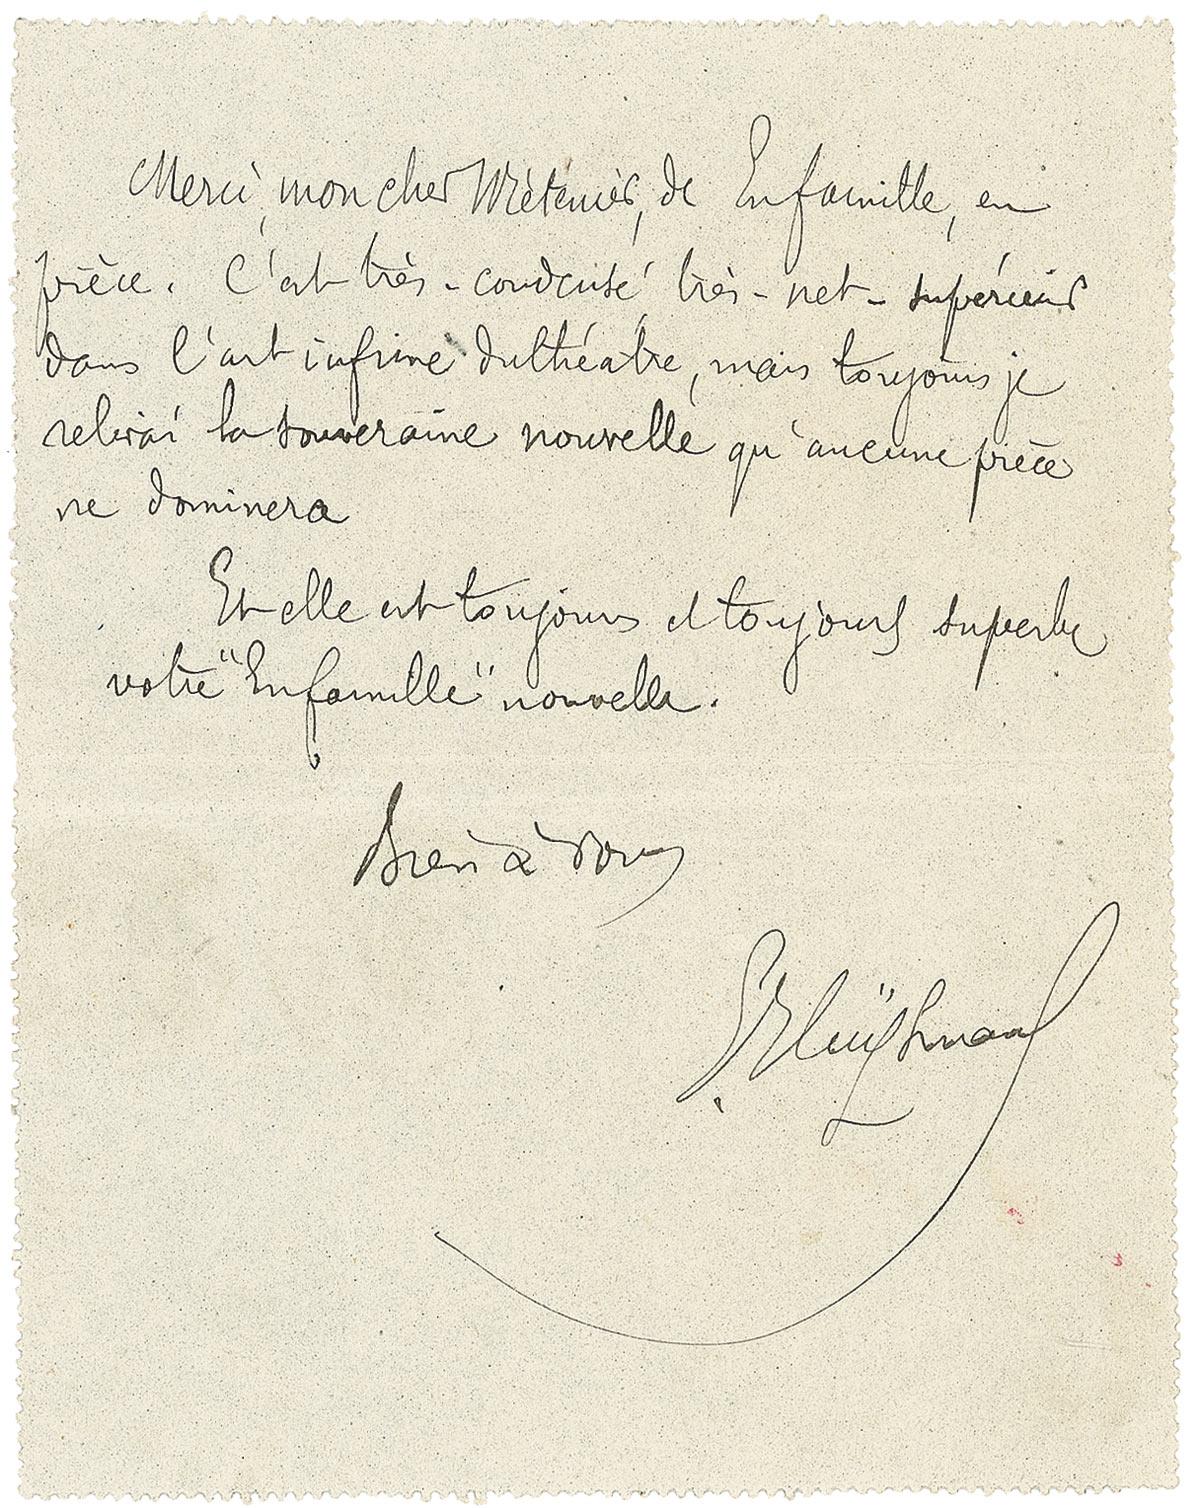 Merci, mon cher Méténier, de En famille, en
pièce. C'est très-condensé très-net-supérieur
dans l'art infime du théâtre, mais toujours je
relirai la souveraine nouvelle qu'aucune pièce
ne dominera
Et elle est toujours et toujours superbe
votre "En famille" nouvelle.
Bien à vous
G Huÿsmans